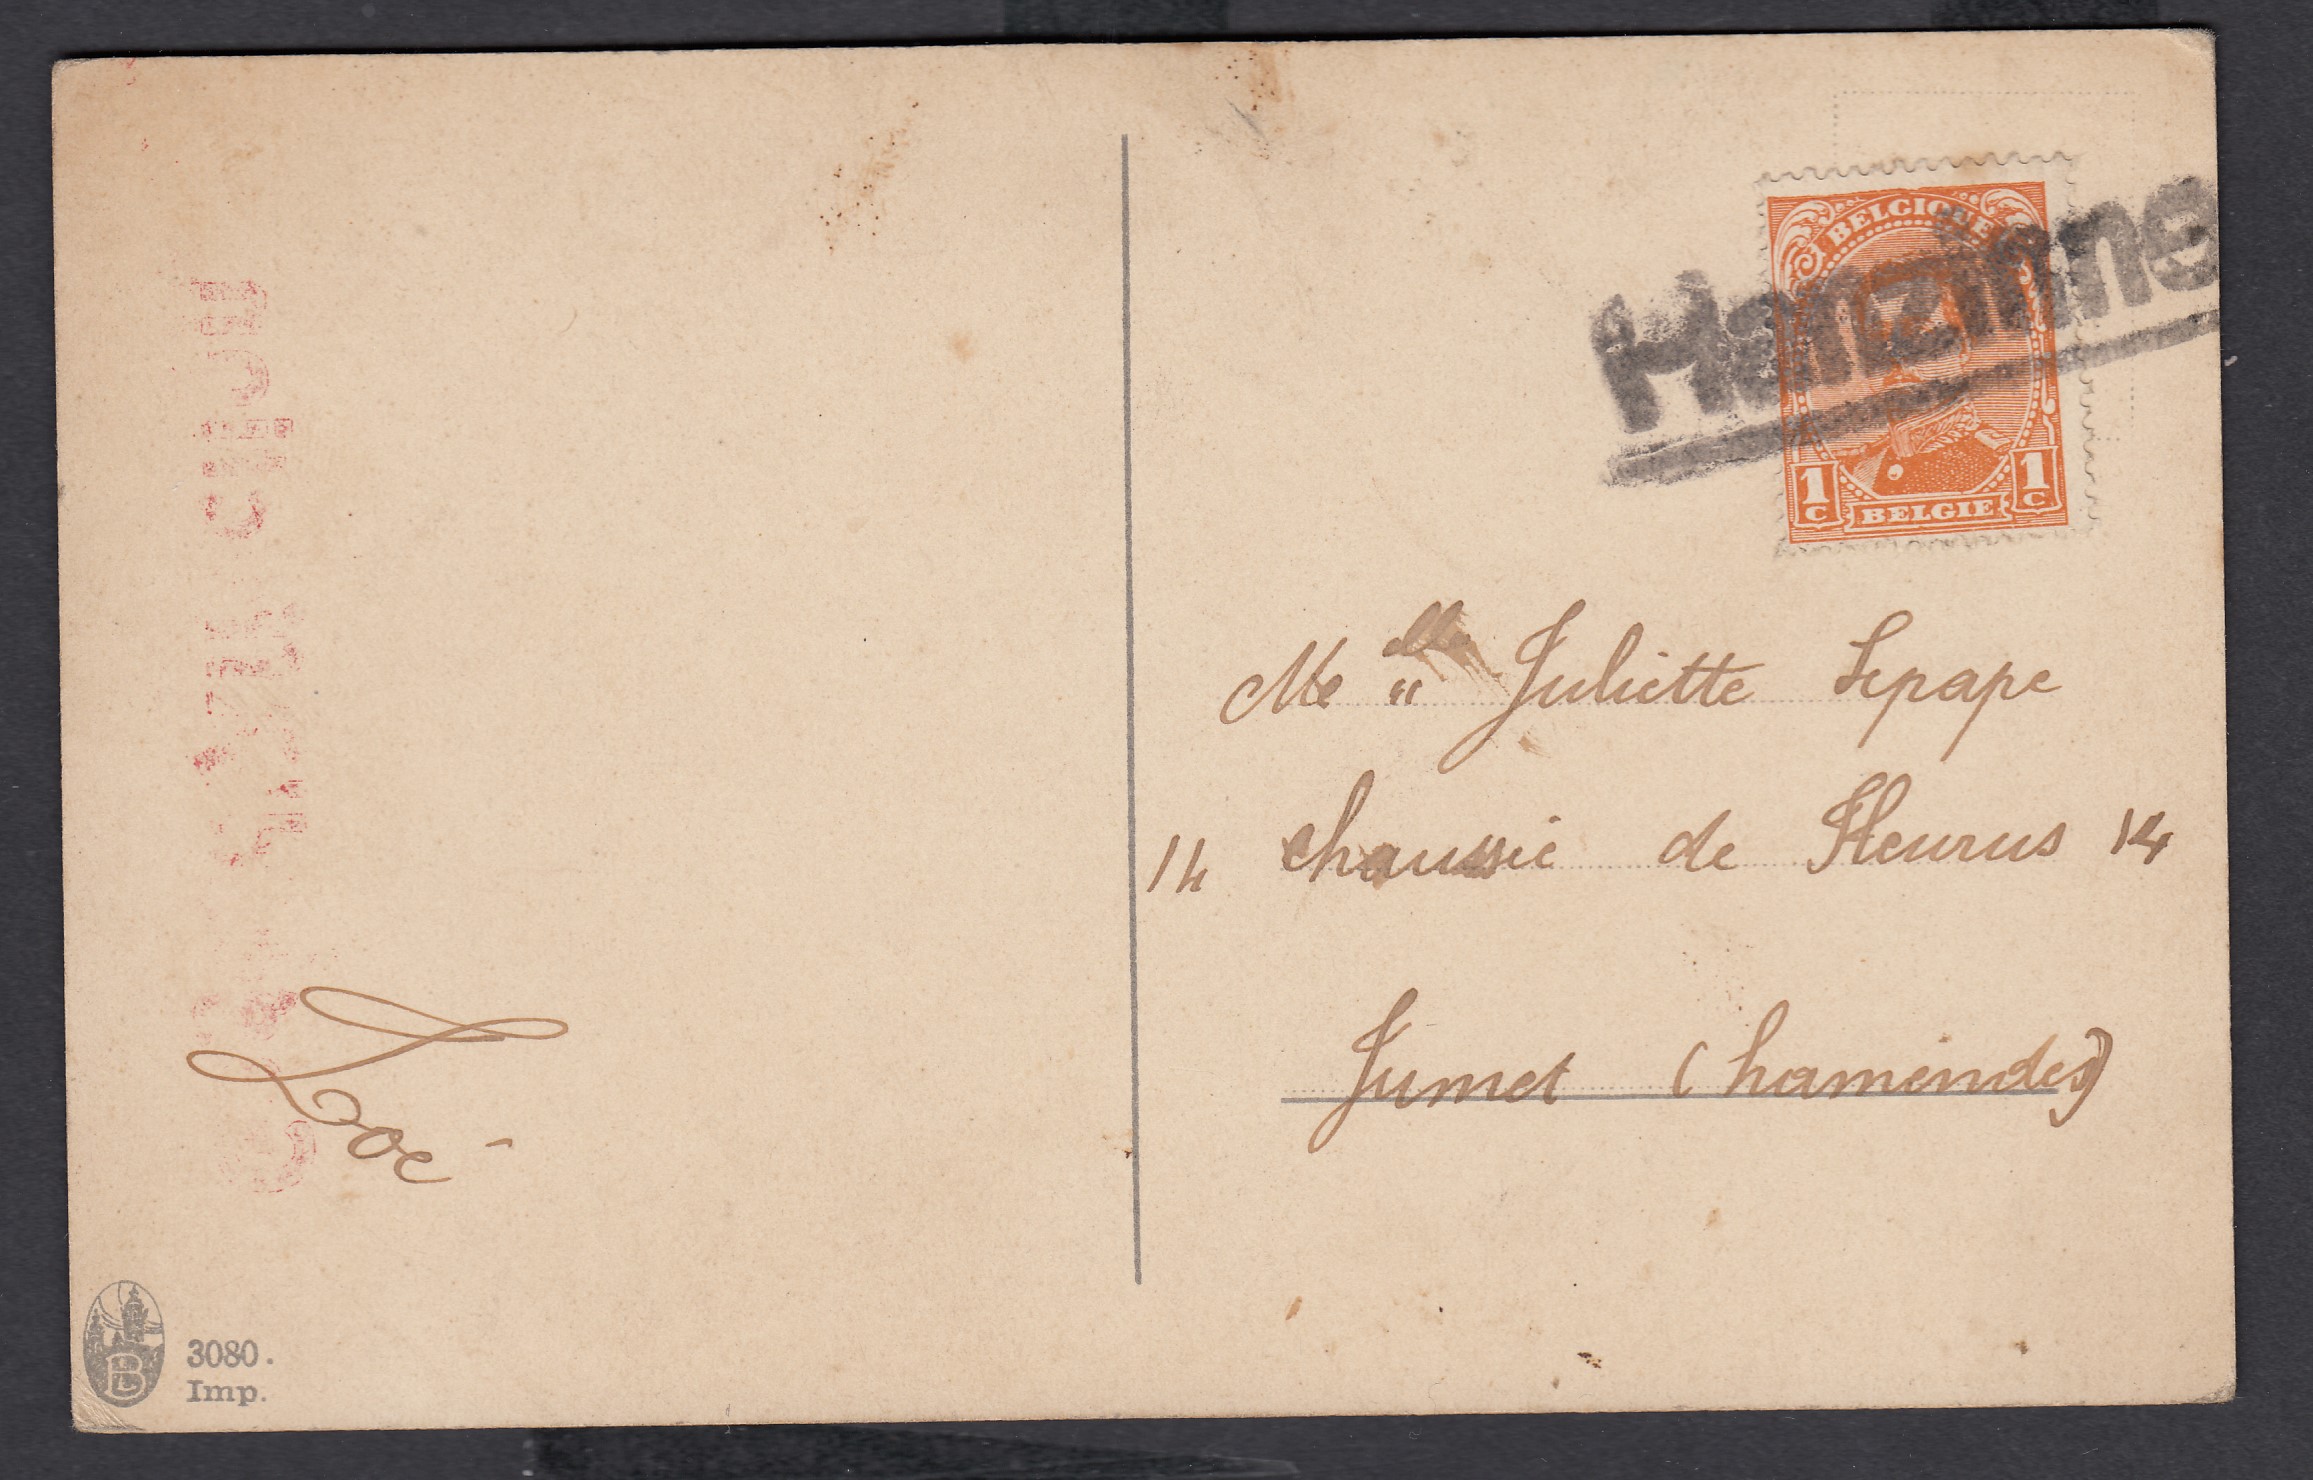 BELGIQUE
Hanzinne
1 C BELGIE 1 C
Melle " Juliette Lepape
14 chaussée de Fleurus 14
Jumet (hamendes)
Zoé
B
3080.
Imp.